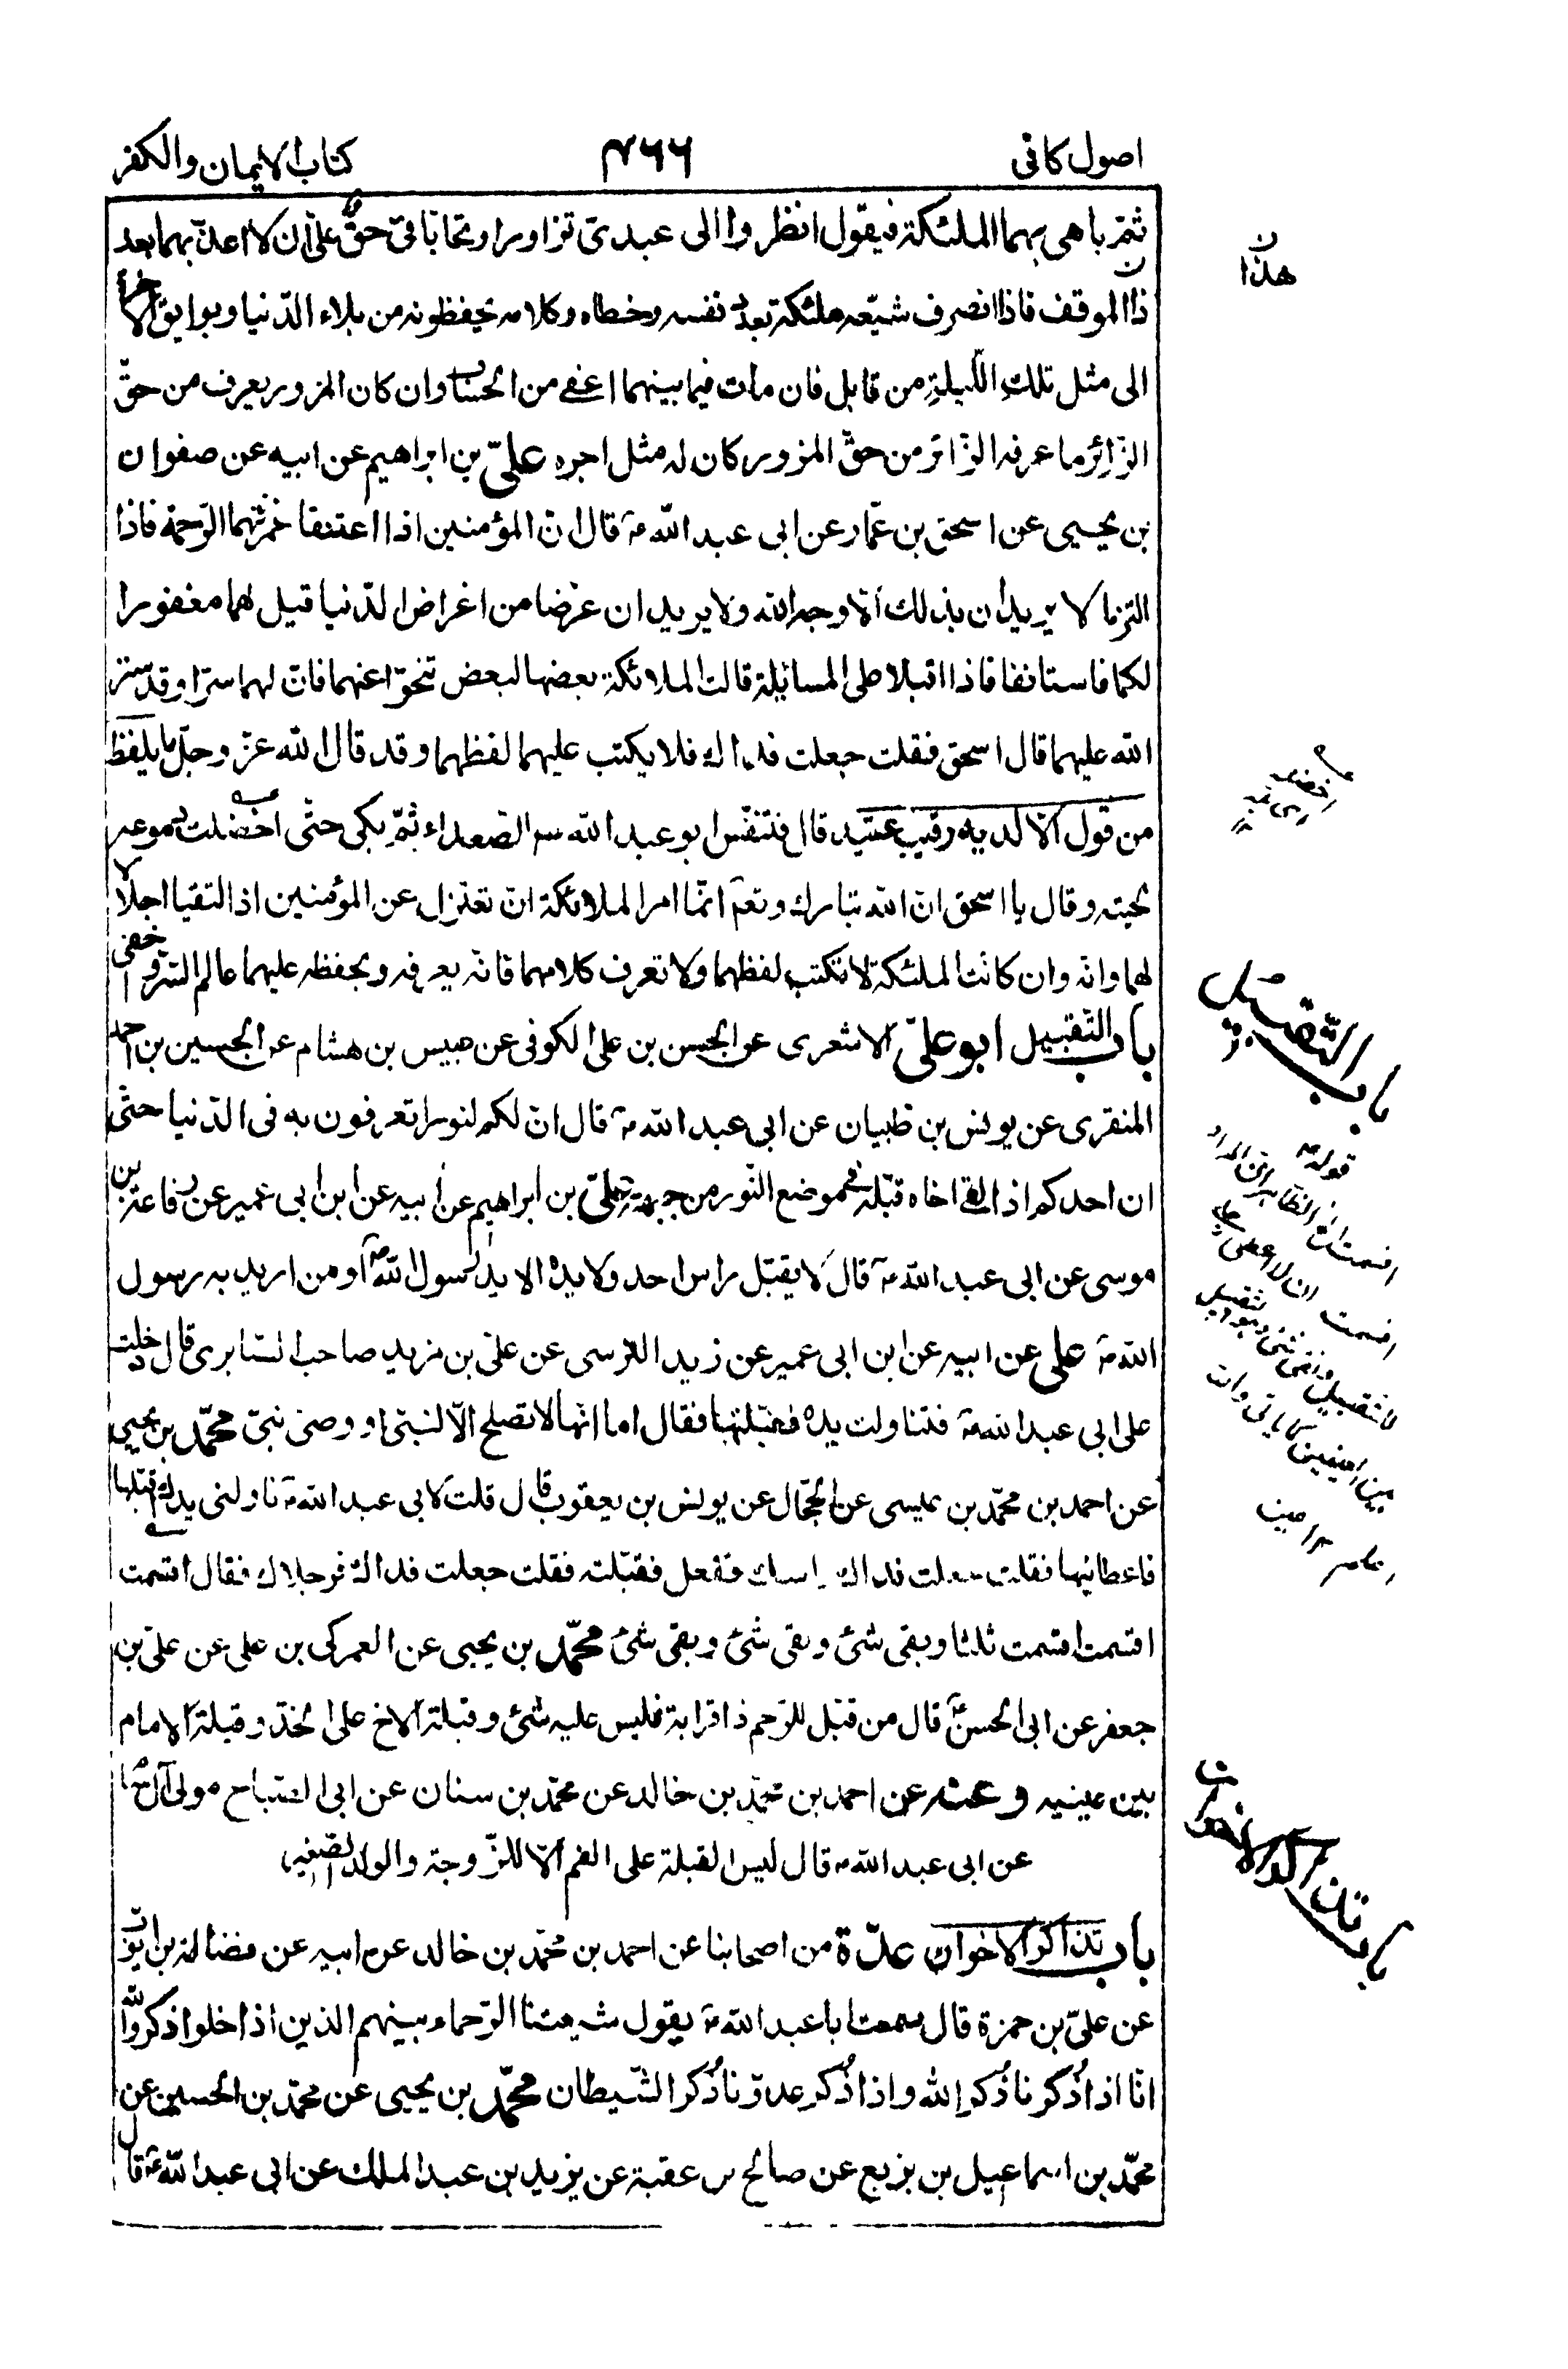 اصول كافى
٤٦٦
كتاب الايمان والكفر
ثمّ باهى بهما الملئكة فيقول انظروا الى عبدىّ تزاورا وتحابّا فىّ حقّ علىّ ان لا اعذّبهما بعد
ذا الموقف فاذا انصرف شيّعه ملئكة بعدد نفسه وخطاه وكلامه يحفظونه من بلاء الدّنيا وبوايق الاخرة
الى مثل تلك اللّيلة من قابل فان مات فيما بينهما اعفى من الحساب وان كان المزور يعرف من حقّ
الزّائر ما عرفه الزّائر من حقّ المزور كان له مثل اجره علىّ بن ابراهيم عن ابيه عن صفوان
بن يحيى عن اسحق بن عمّار عن ابى عبد اللّه ع قال انّ المؤمنين اذا اعتنقا غمرتهما الرّحمة فاذا
التزما لا يريدان بذلك الّا وجه اللّه ولا يريدان غرضا من اغراض الدّنيا قيل لهما مغفورا
لكما فاستانفا فاذا اقبلا على المسائلة قالت الملائكة بعضها لبعض تنحّوا عنهما فانّ لهما سرّا وقد ستر
اللّه عليهما قال اسحق فقلت جعلت فداك فلا يكتب عليهما لفظهما وقد قال اللّه عزّ وجلّ ما يلفظ
من قول الّا لديه رقيب عتيد قال فتنفّس ابو عبد اللّه ع الصّعداء ثمّ بكى حتّى اخضلت دموعه
لحيته وقال يا اسحق انّ اللّه تبارك وتعم انّما امر الملائكة ان تعتزل عن المؤمنين اذا التقيا اجلالا
لهما وانّه وان كانت الملئكة لا تكتب لفظهما ولا تعرف كلامهما فانّه يعرفه ويحفظه عليهما عالم السّرّ واخفى
باب التّقبيل ابو علىّ الاشعرى عن الحسن بن علىّ الكوفى عن عبيس بن هشام عن الحسين بن احمد
المنقرى عن يونس بن ظبيان عن ابى عبد اللّه ع قال انّ لكم لنورا تعرفون به فى الدّنيا حتّى
ان احدكم اذا لقى اخاه قبّله فى موضع النّور من جبهته علىّ بن ابراهيم عن ابيه عن ابن ابى عمير عن رفاعة بن
موسى عن ابى عبد اللّه ع قال لا يقبّل راس احد ولا يده الا يد رسول اللّه ص او من اريد به رسول
اللّه ص على عن ابيه عن ابن ابى عمير عن زيد النّرسى عن علىّ بن مزيد صاحب السّابرى قال دخلت
على ابى عبد اللّه ع فتناولت يده فقبّلتها فقال اما انّها لا تصلح الّا لنبىّ او وصىّ نبىّ محمّد بن يحيى
عن احمد بن محمّد بن عيسى عن الحجّال عن يونس بن يعقوب قال قلت لابى عبد اللّه ع ناولنى يدك اقبّلها
فاعطانيها فقلت جعلت فداك راسك ففعل فقبّلته فقلت جعلت فداك فرجلاك فقال اقسمت
اقسمت اقسمت ثلثا وبقى شئ وبقى شئ وبقى شئ محمّد بن يحيى عن العمركى بن على عن علىّ بن
جعفر عن ابى الحسن ع قال من قبّل للرّحم ذا قرابة فليس عليه شئ وقبلة الاخ على الخدّ وقبلة الامام
بين عينيه وعنه عن احمد بن محمّد بن خالد عن محمّد بن سنان عن ابى الصّباح مولى آل سام
عن ابى عبد اللّه ع قال ليس القبلة على الفم الّا للزّوجة والولد الصّغير
باب تذاكر الاخوان عدّة من اصحابنا عن احمد بن محمّد بن خالد عن ابيه عن فضالة بن ايّوب
عن علىّ بن حمزة قال سمعت ابا عبد اللّه ع يقول شيعتنا الرّحماء بينهم الذين اذا خلوا ذكروا اللّه
انّا اذا ذُكرنا ذُكر اللّه واذا ذُكر عدوّنا ذُكر الشّيطان محمّد بن يحيى عن محمّد بن الحسين عن
محمّد بن اسماعيل بن بزيع عن صالح بن عقبة عن يزيد بن عبد الملك عن ابى عبد اللّه ع قال
هذا ن
باب التّقبيل
قوله ع
اقسمت
باب تذاكر الاخوان